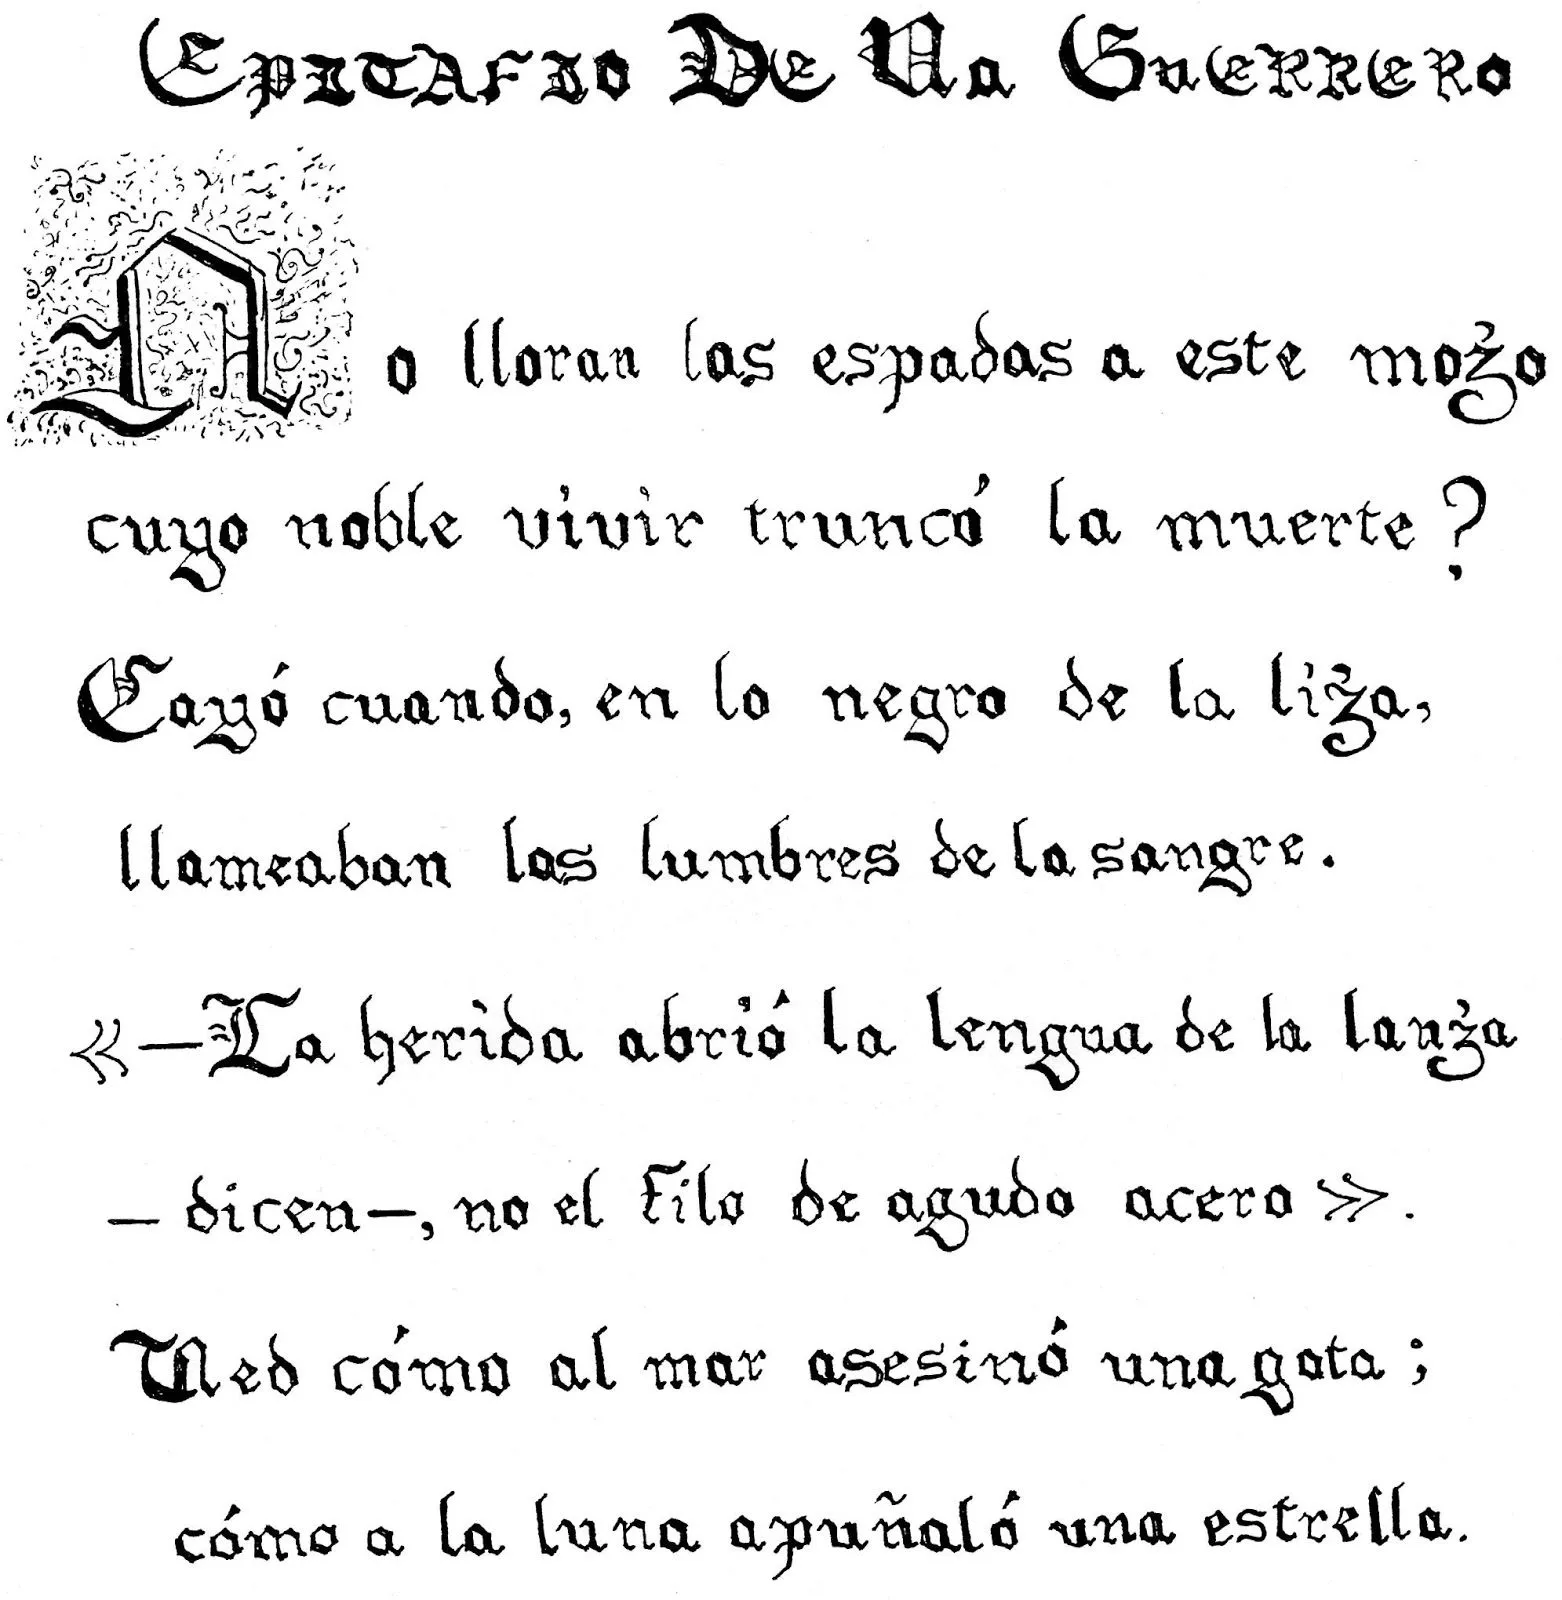 Epitafio De Un Guerrero
No lloran las espadas a este mozo
cuyo noble vivir truncó la muerte?
Cayó cuando, en lo negro de la liza,
llameaban las lumbres de la sangre.
«—La herida abrió la lengua de la lanza
—dicen—, no el filo de agudo acero».
Ved cómo al mar asesinó una gota;
cómo a la luna apuñaló una estrella.